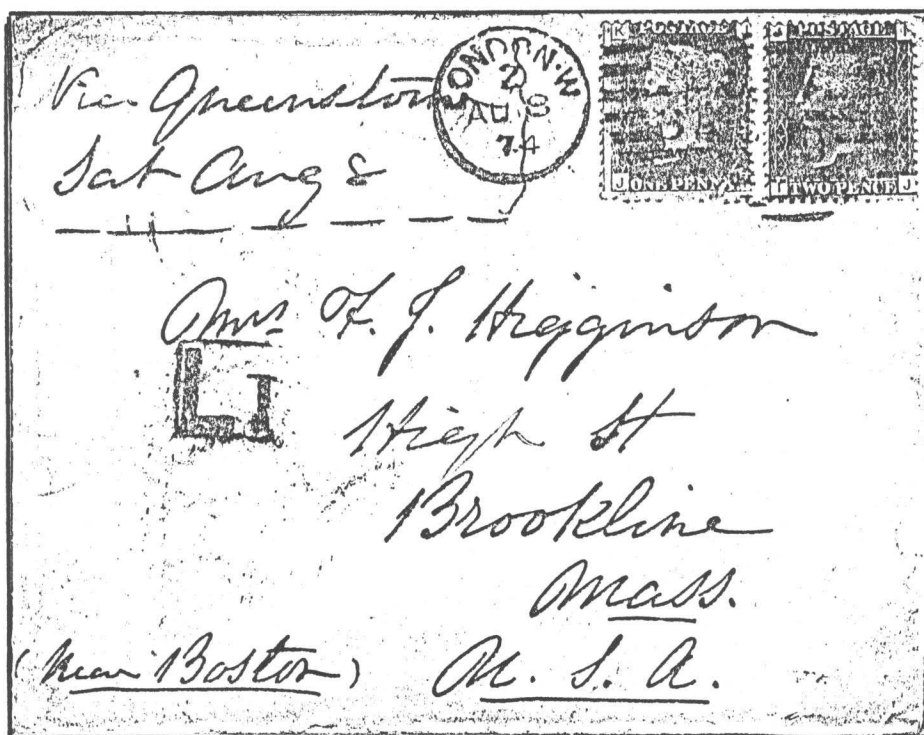 Via Queenstown
Sat Aug 8
LONDON·W
2
AU 8
74
K POSTAGE
J ONE PENNY
J POSTAGE I
I TWO PENCE J
Mrs F. J. Higginson
L1
High St
Brookline
Mass.
(Near Boston)
U. S. A.